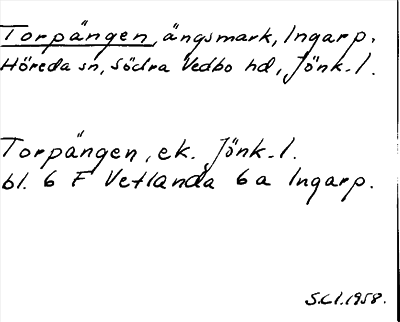 Torpängen, ängsmark, Ingarp.
Höreda sn, Södra Vedbo hd, Jönk. l.
Torpängen, ek. Jönk. l.
bl. 6 F Vetlanda 6 a Ingarp.
S.Cl. 1958.